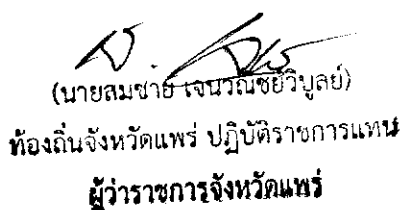 (นายสมชาย เจนวณิชย์วิบูลย์)
ท้องถิ่นจังหวัดแพร่ ปฏิบัติราชการแทน
ผู้ว่าราชการจังหวัดแพร่